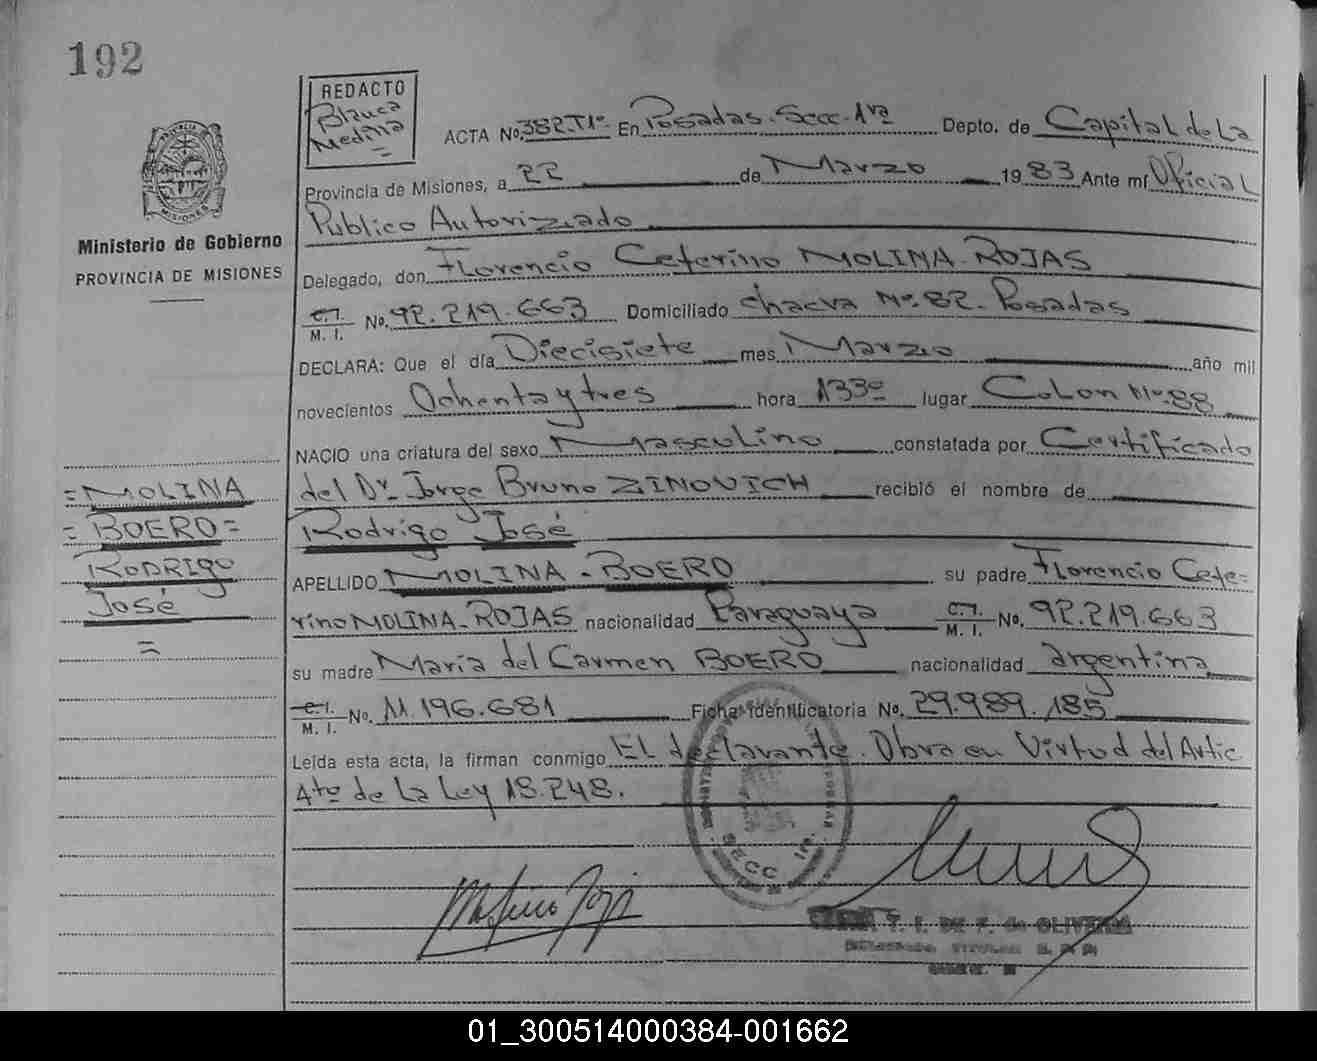 192
REDACTO
Blanca
Medina
MISIONES
Ministerio de Gobierno
PROVINCIA DE MISIONES
ACTA No. 382-T1º En Posadas. Secc. 1ra Depto. de Capital de La
Provincia de Misiones, a 22 de Marzo 1983 Ante mí Oficial
Publico Autorizado
Delegado, don Florencio Ceferino MOLINA-ROJAS
C.I.
M. I. No. 92.219.663 Domiciliado chacra Nº. 82. Posadas
DECLARA: Que el día Diecisiete mes Marzo año mil
novecientos Ochentaytres hora 1330 lugar Colon Nº. 88
NACIO una criatura del sexo Masculino constatada por Certificado
del Dr. Jorge Bruno ZINOVICH recibió el nombre de
Rodrigo José
APELLIDO MOLINA-BOERO su padre Florencio Cefe=
rino MOLINA-ROJAS nacionalidad Paraguaya C.I. M. I. No. 92.219.663
su madre María del Carmen BOERO nacionalidad argentina
C.I.
M. I. No. 11.196.681 Ficha identificatoria No. 29.989.185
Leída esta acta, la firman conmigo El declarante. Obra en Virtud del Artic
4to de La Ley 18.248.
=MOLINA
=BOERO=
RODRIGO
José
=
SECC 1ra.
T. I. DE F. de OLIVEIRA
01_300514000384-001662